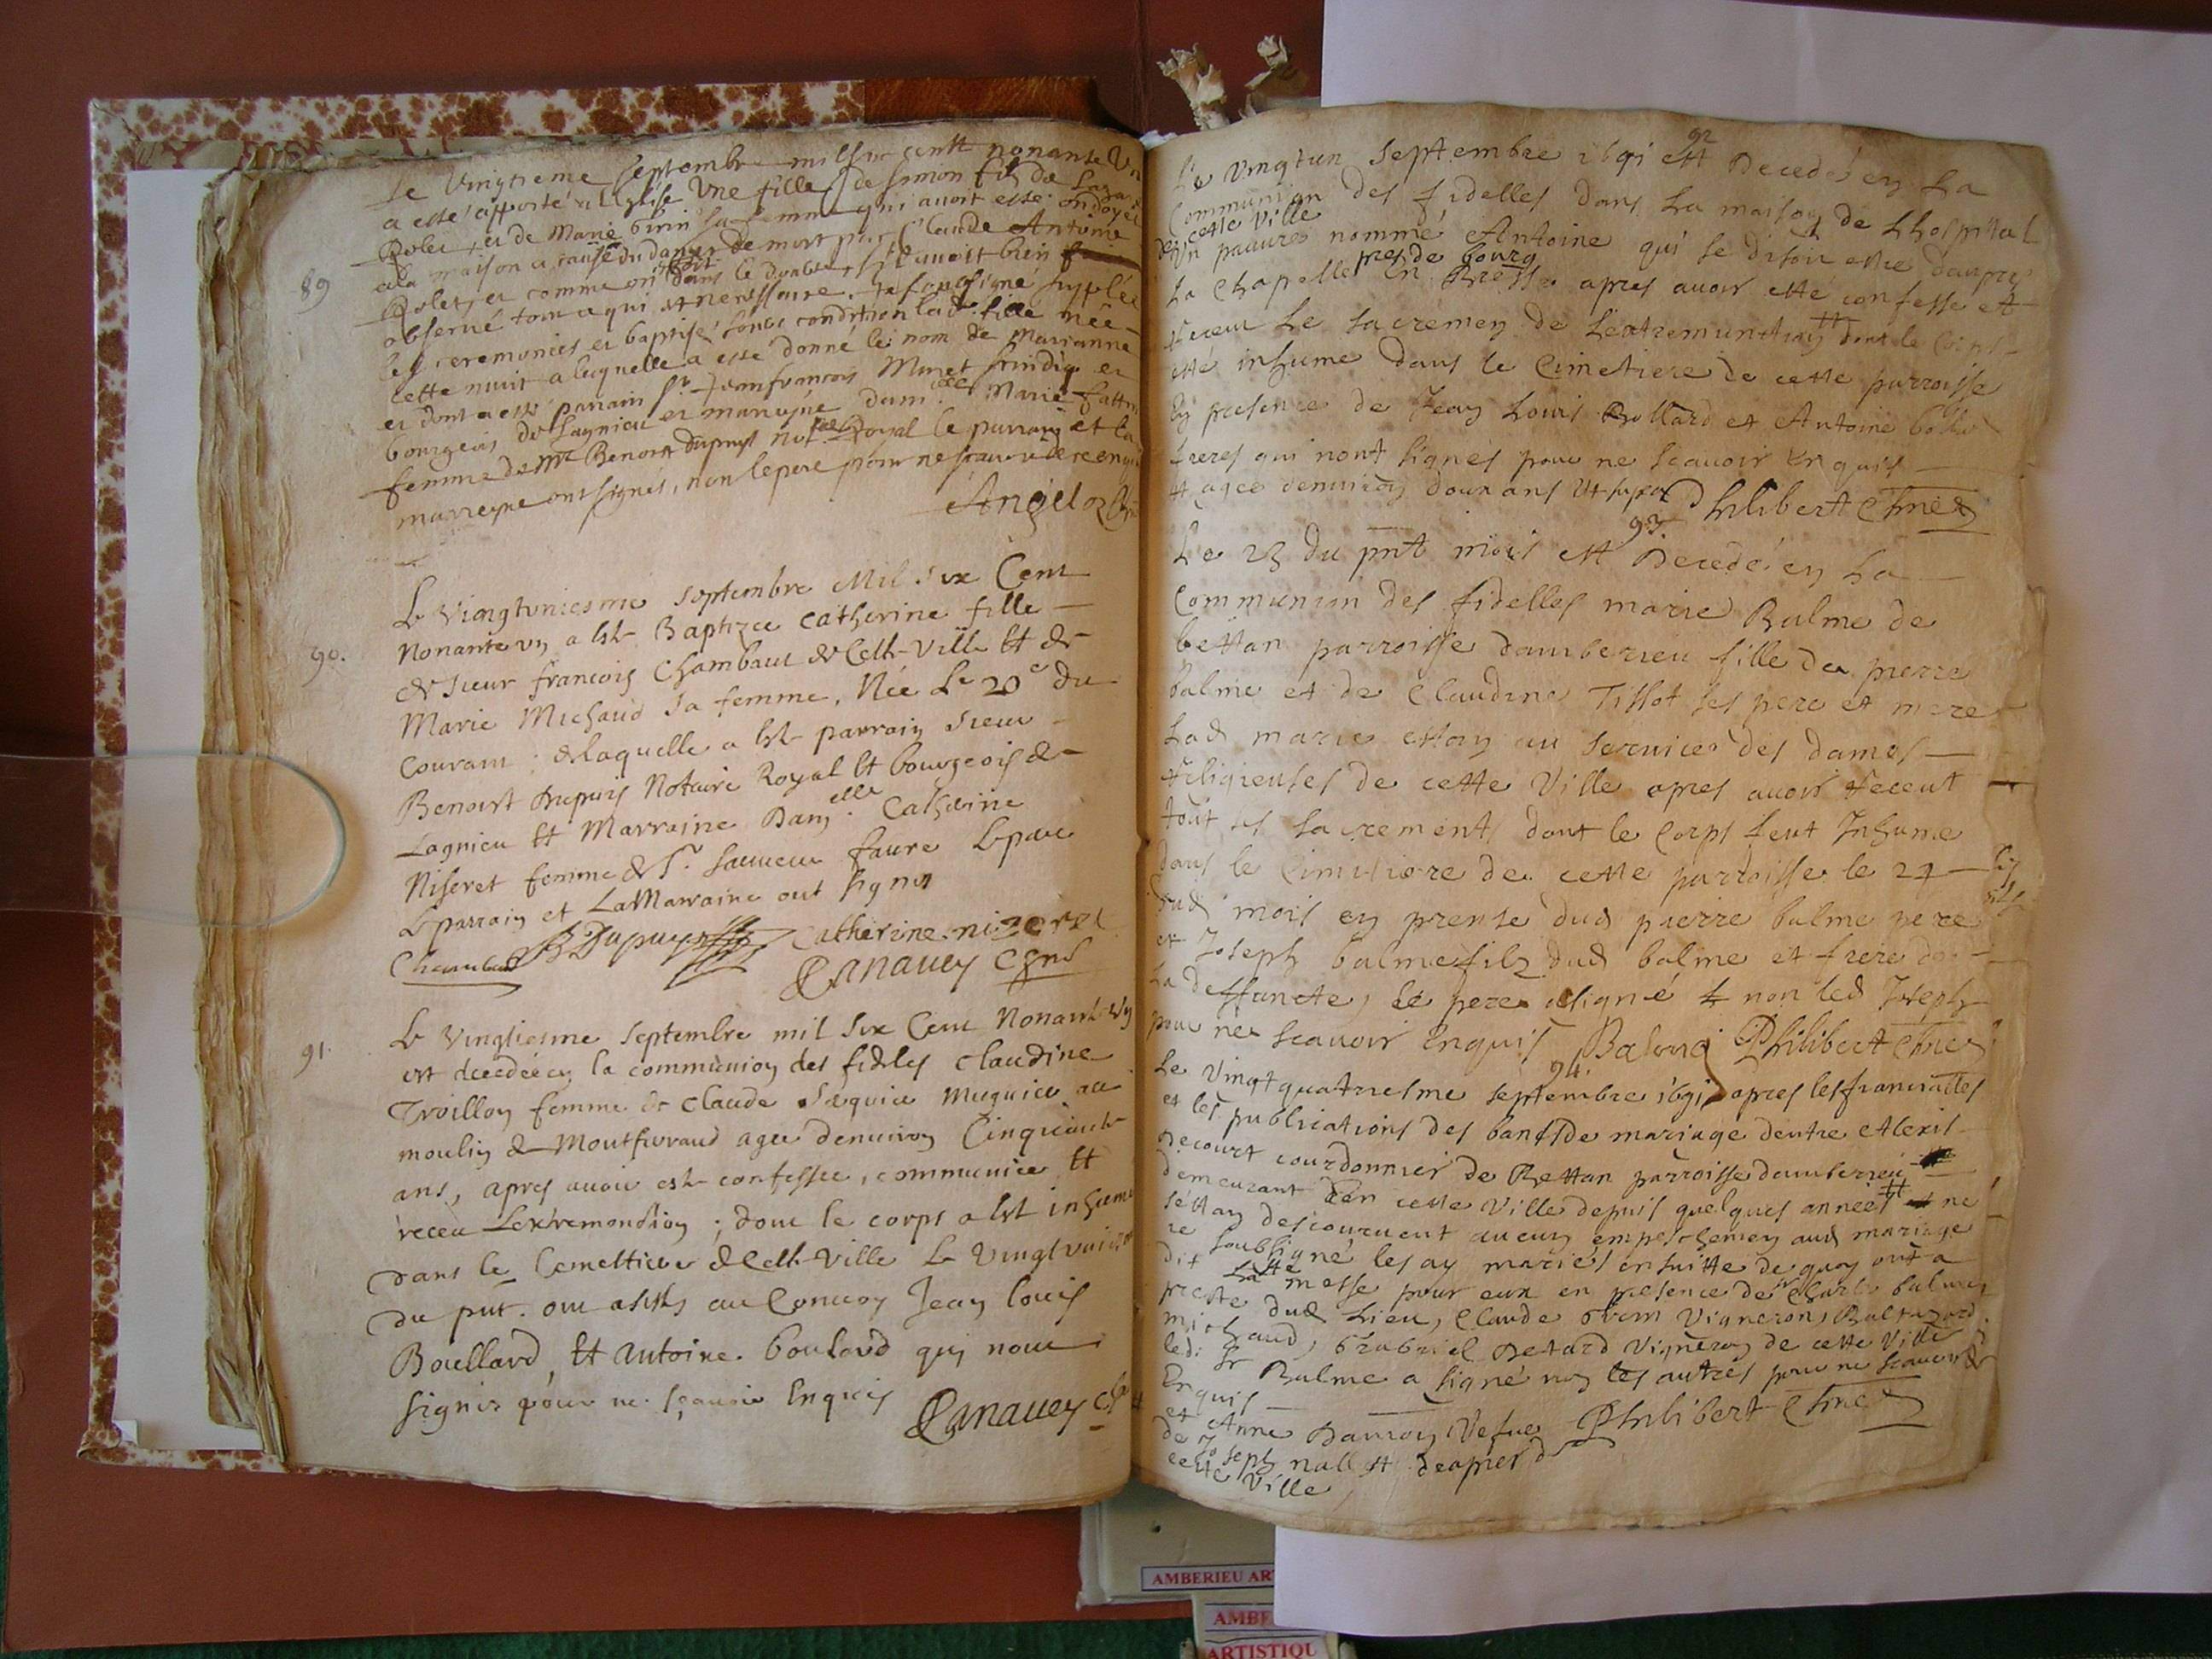 Le Vingtieme septembre mil six centt nonante Un
a essé apporté a l'Eglise Une fille de Simon fils de
et de Marie sa femme qui avoit esté ondoyée
a la maison a cause du danger de mort par Claude Antoine
et comme on estoit dans le doubte, s'il avoit bien
89
observé tout ce qui est nenessaire. Je soussigné supplée
les ceremonies et baptisé soubs condition lad. fille née
cette nuit a laquelle a esse donné le nom de Marianne
et dont a esté parrain Sr. Jeanfrancois Munet sindiq et
bourgeois de Lagnieu et marrayne dam.elle Marie
femme de Mr Benoit Dupuys not.re Royal le parrain et la
marreyne ont signés, non le pere pour ne scavoir de ce enquis
Angeloz
90.
Le Vingtuniesme septembre Mil six Cent
Nonante un a esté Baptizee Catherine fille
de sieur francois Chambaut de Cette Ville Et de
Marie Michaud sa femme, Née Le 20e du
Courant ; de laquelle a esté parrain sieur
Benoist Dupuis Notaire Royal Et bourgeois de
Lagnieu Et Marraine Dam.elle Catherine
Niseret femme de Sr. sauveur faure Le pere
Le parrain et La Marraine ont signez
Chambaud B Dupuys Catherine nizeret
Canauey
91.
Le Vingtiesme septembre mil six Cent Nonante un
est decedée en la communion des fideles Claudine
Troillon femme de Claude Jaquier Mugnier au
moulin de Montferrand agee denviron Cinquante
ans, apres avoir esté confessee, communiee Et
receu Lextremonction ; dont le corps a Est inhumé
dans le Cemettiere de Cette Ville Le Vingtunies
du pnt. ont assistes au Convoy Jean louis
Boullard Et Antoine boulard qui nont
signez pour ne sçavoir Enquis
Canauey
92
Le vingtun septembre 1691 est Decedé en La
Communion des fidelles dans la maison de Lhospital
de cette Ville
Un pauvre nommé Antoine qui se disoit estre daupres
pres de bourg
La Chapelle en Bresse apres avoir esté confesse et
receu Le sacremen de L'extremunction dont le Corps
esté inhume dans le Cimetiere de cette parroisse
En presence de Jean Louis Bollard et Antoine bollard
freres qui nont signés pour ne scavoir Enquis
agee denviron douze ans Ut supra Philibert
93.
Le 23 du pnt mois est Decedé en La
Communion des fidelles marie Balme de
bettan parroisse damberieu fille de pierre
balme et de Claudine Tissot ses pere et mere
Lad marie estan au service des dames
Religieuses de cette Ville apres avoir receut
tout ses sacrements dont le Corps feut Inhume
dans le Cimitiere de cette parroisse le 24
dud mois en prense dud pierre balme pere
et Joseph balme filz dud balme et frere de
La deffuncte, Le pere a signé non led Joseph
pour ne scavoir Enquis Balme Philibert
94.
Le Vingtquatriesme septembre 1691 apres les fiancailles
et les publications des bancs de mariage dentre Alexis
Decourt courdonnier de Bettan parroisse damberieu
demeurant en cette Ville depuis quelques années ne
s'estan descouvert aucun empeschemen aud mariage
je soubsigné les ay mariés ensuitte de quoy ont a
dit La messe pour eux en presence de Sr Charle balme
prestre dud Lieu, Claude Vigneron, Baltazard
michaud, Gabriel Betard Vigneron de cette Ville
led: Sr Balme a signé non les autres pour ne scavoir
Enquis
et Anne Damon Vefve Philibert
de Joseph
cette Ville
AMBERIEU AR
AMBE
ARTISTIQU